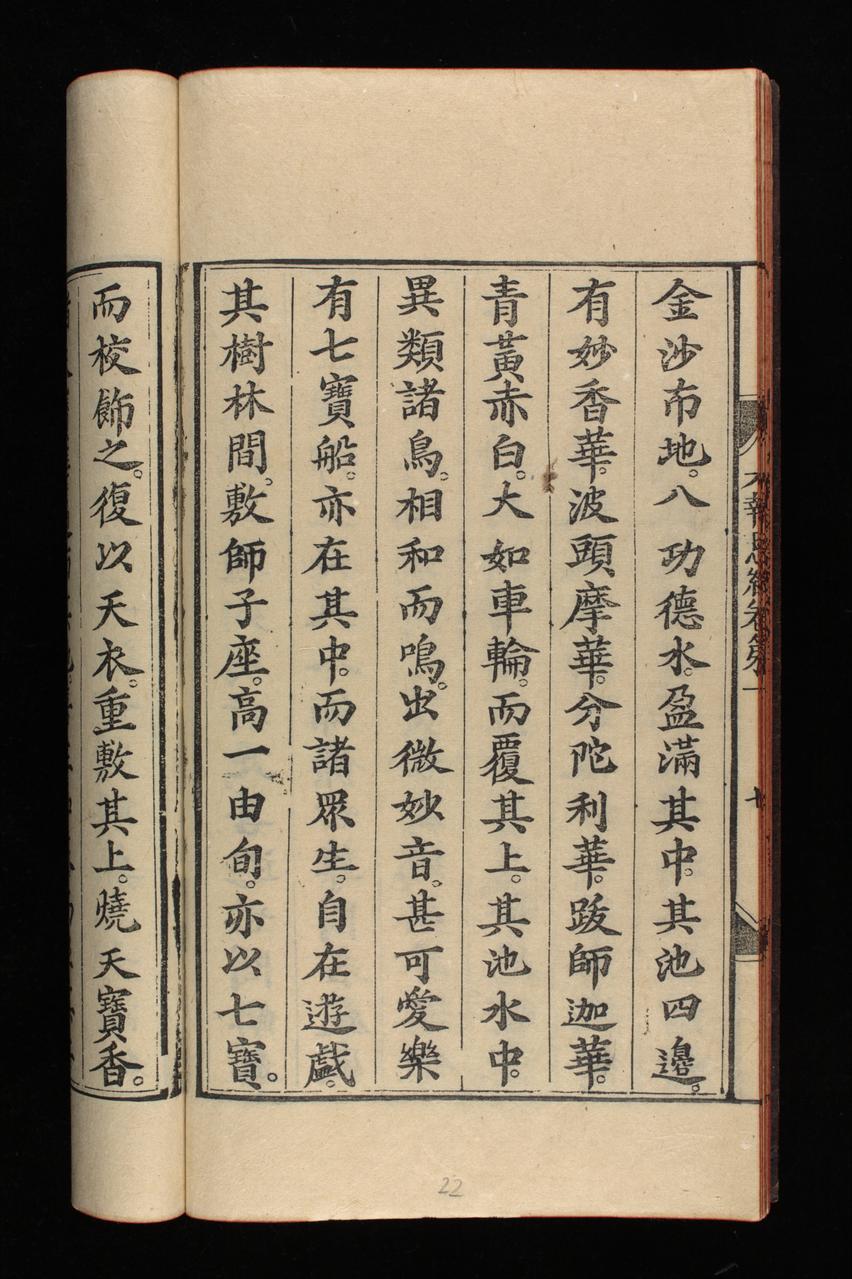 金沙布地。八功德水。盈滿其中。其池四邊。
有妙香華。波頭摩華。分陀利華。跋師迦華。
青黃赤白。大如車輪。而覆其上。其池水中。
異類諸鳥。相和而鳴。出微妙音。甚可愛樂
有七寶船。亦在其中。而諸眾生。自在遊戲。
其樹林間。敷師子座。高一由旬。亦以七寶。
而校飾之。復以天衣。重敷其上。燒天寶香。
22